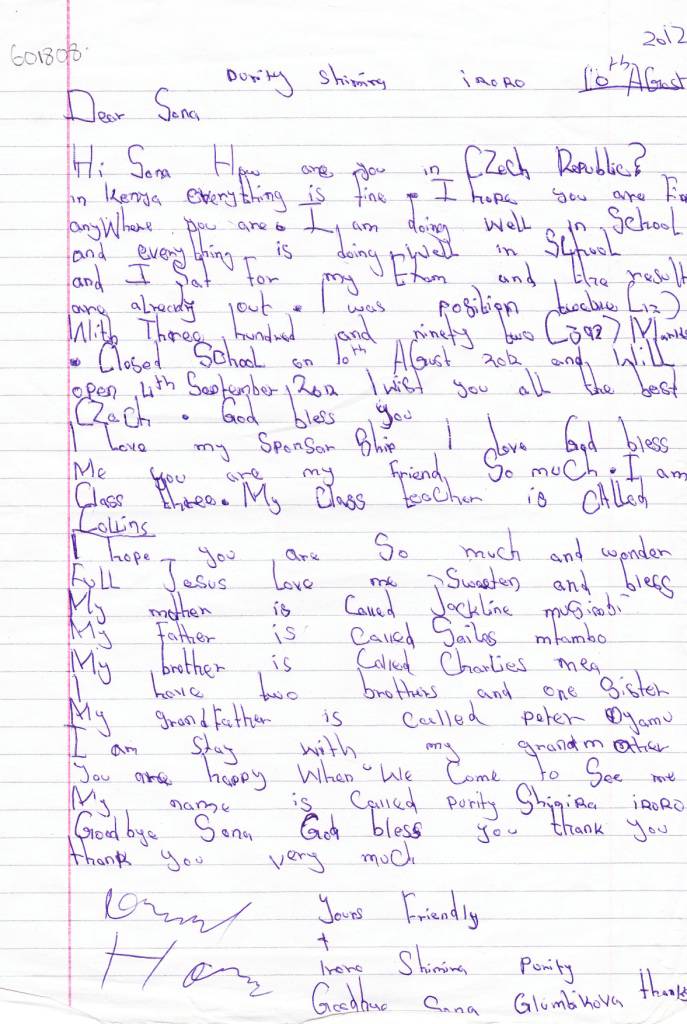 2012
601808
Purity Shimira iRoRo 10th AGust
Dear Sana
Hi Sana How are you in CZech Republic?
in Kenya everything is fine. I hope you are
anyWhere you are. I am doing Well in School
and everything is doing Well in School
and I Sat For my Exam and the result
are already out. I was position twelve (12)
With Three hundred and ninety two (392)
. Closed School on 10th AGust 2012 and Will
open 4th September 2012 I wist you all the best
CZech. God bless you
I Love my Sponsor Ship I Love God bless
Me you are my Friend So much. I am
Class three. My Class teacher is CAlled
Collins
I hope you are So much and wonder
Full Jesus Love me Sweeten and bless
My mother is Called Jackline
My Father is Called Sailas mtambo
My brother is Called Charlies
I have two brothers and one Sister
My grandFather is called peter
I am Stay with my grandmother
You are happy When We Come to See me
My name is Called purity Shigira iRoRo
Goodbye Sana God bless you thank you
thank you very much
Yours Friendly
+
iroro Shimira Purity
Goodbye Sana Glumbikova thanks